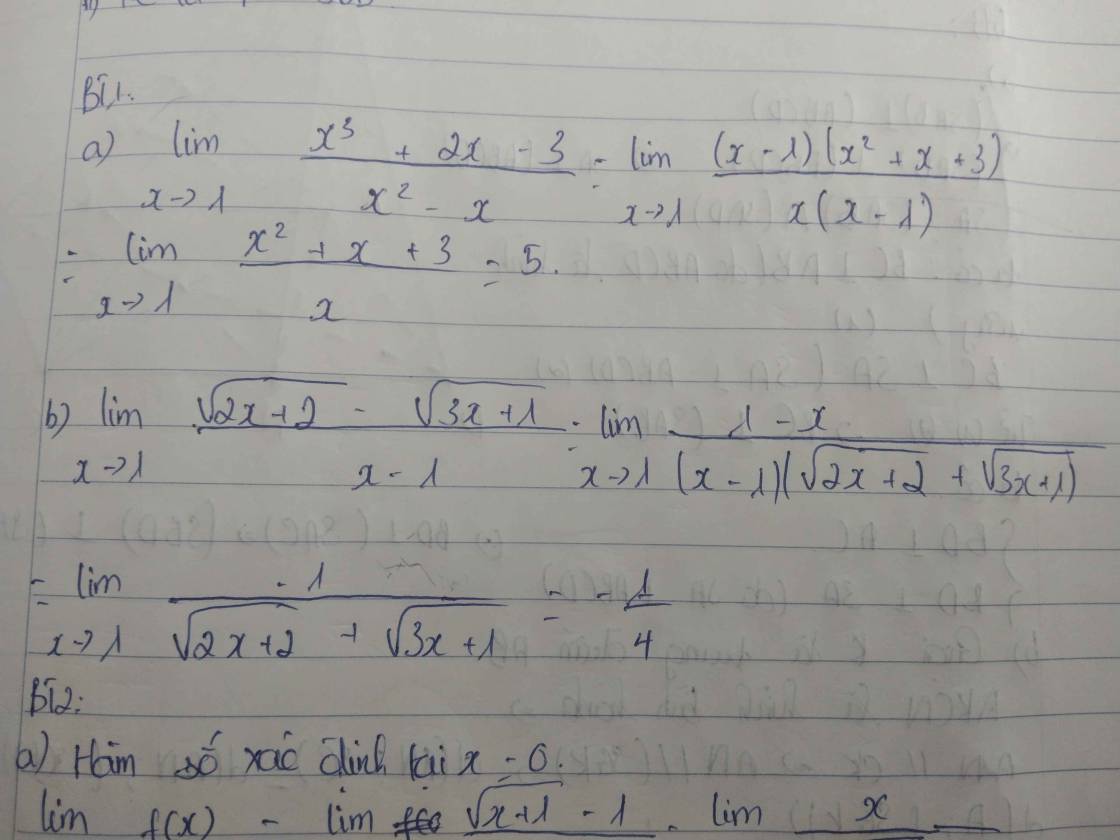 BT1:
a) lim x→1 (x³ + 2x - 3)/(x² - x) = lim x→1 ((x - 1)(x² + x + 3))/(x(x - 1))
= lim x→1 (x² + x + 3)/x = 5.
b) lim x→1 (√(2x+2) - √(3x+1))/(x - 1) = lim x→1 (1 - x)/((x - 1)(√(2x+2) + √(3x+1)))
= lim x→1 (-1)/(√(2x+2) + √(3x+1)) = -1/4
BT2:
a) Hàm số xác định tại x = 0.
lim f(x) = lim (√(x+1) - 1) = lim x